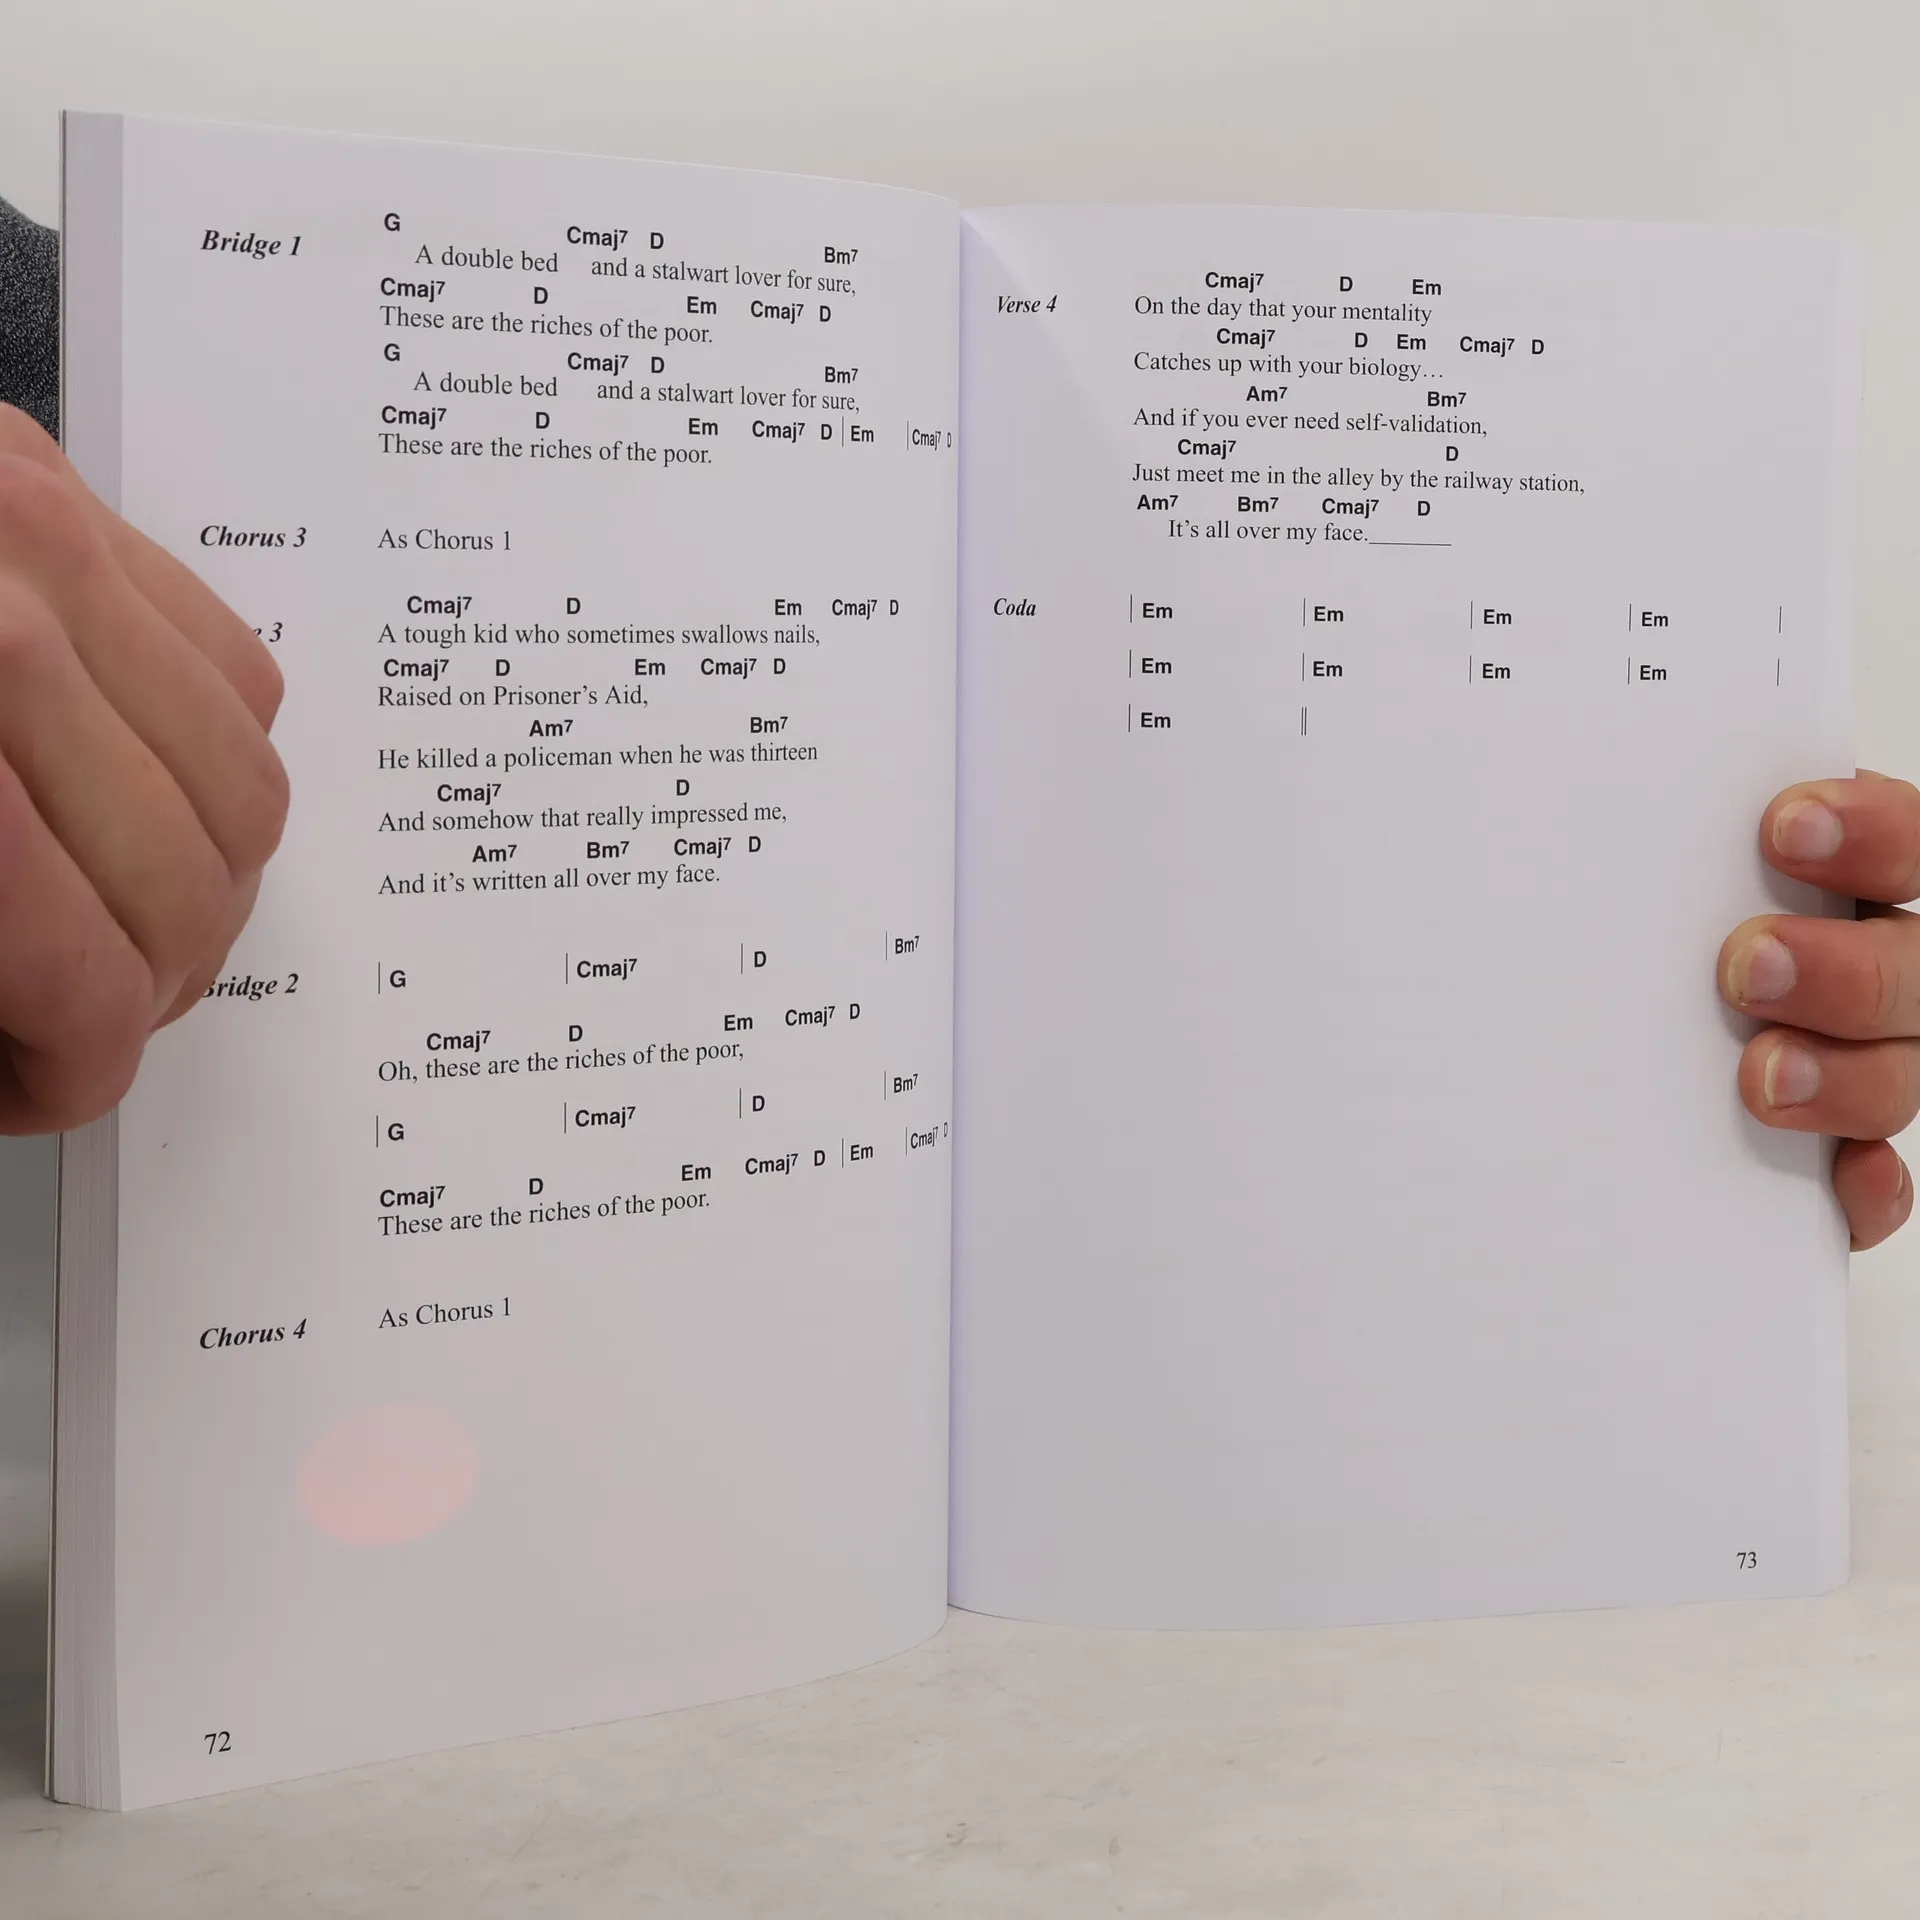 G Cmaj7 D Bm7
Bridge 1 A double bed and a stalwart lover for sure,
Cmaj7 D Em Cmaj7 D
These are the riches of the poor.
G Cmaj7 D Bm7
A double bed and a stalwart lover for sure,
Cmaj7 D Em Cmaj7 D | Em | Cmaj7 D
These are the riches of the poor.
Chorus 3 As Chorus 1
Cmaj7 D Em Cmaj7 D
3 A tough kid who sometimes swallows nails,
Cmaj7 D Em Cmaj7 D
Raised on Prisoner’s Aid,
Am7 Bm7
He killed a policeman when he was thirteen
Cmaj7 D
And somehow that really impressed me,
Am7 Bm7 Cmaj7 D
And it’s written all over my face.
Bridge 2 | G | Cmaj7 | D | Bm7
Cmaj7 D Em Cmaj7 D
Oh, these are the riches of the poor,
| G | Cmaj7 | D | Bm7
Cmaj7 D Em Cmaj7 D | Em | Cmaj7 D
These are the riches of the poor.
Chorus 4 As Chorus 1
72
Cmaj7 D Em
Verse 4 On the day that your mentality
Cmaj7 D Em Cmaj7 D
Catches up with your biology…
Am7 Bm7
And if you ever need self-validation,
Cmaj7 D
Just meet me in the alley by the railway station,
Am7 Bm7 Cmaj7 D
It’s all over my face.______
Coda | Em | Em | Em | Em |
| Em | Em | Em | Em |
| Em ||
73